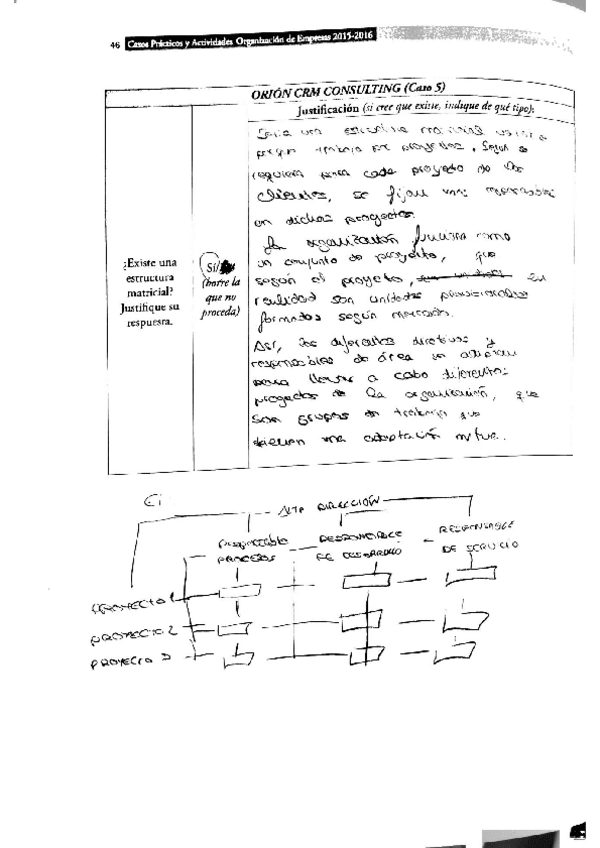 46 Casos Prácticos y Actividades Organización de Empresas 2015-2016
ORIÓN CRM CONSULTING (Caso 5)
Justificación (si cree que existe, indique de qué tipo):
¿Existe una
estructura
matricial?
Justifique su
respuesta.
Sí/
(borre la
que no
proceda)
Sería una estructura matricial
porque trabaja por proyectos. Según se
requiera para cada proyecto de los
clientes, se fijan unos responsables
en dichos proyectos.
La organización funciona como
un conjunto de proyectos, que
según el proyecto, en
realidad son unidades provisionales
formadas según mercados.
Así, los diferentes directivos y
responsables de área se
para llevar a cabo diferentes
proyectos de la organización, que
son grupos de trabajo que
una adaptación mutua.
ALTA DIRECCIÓN
RESPONSABLE
PROCESOS
RESPONSABLE
DE DESARROLLO
RESPONSABLE
DE SERVICIO
PROYECTO 1
PROYECTO 2
PROYECTO 3